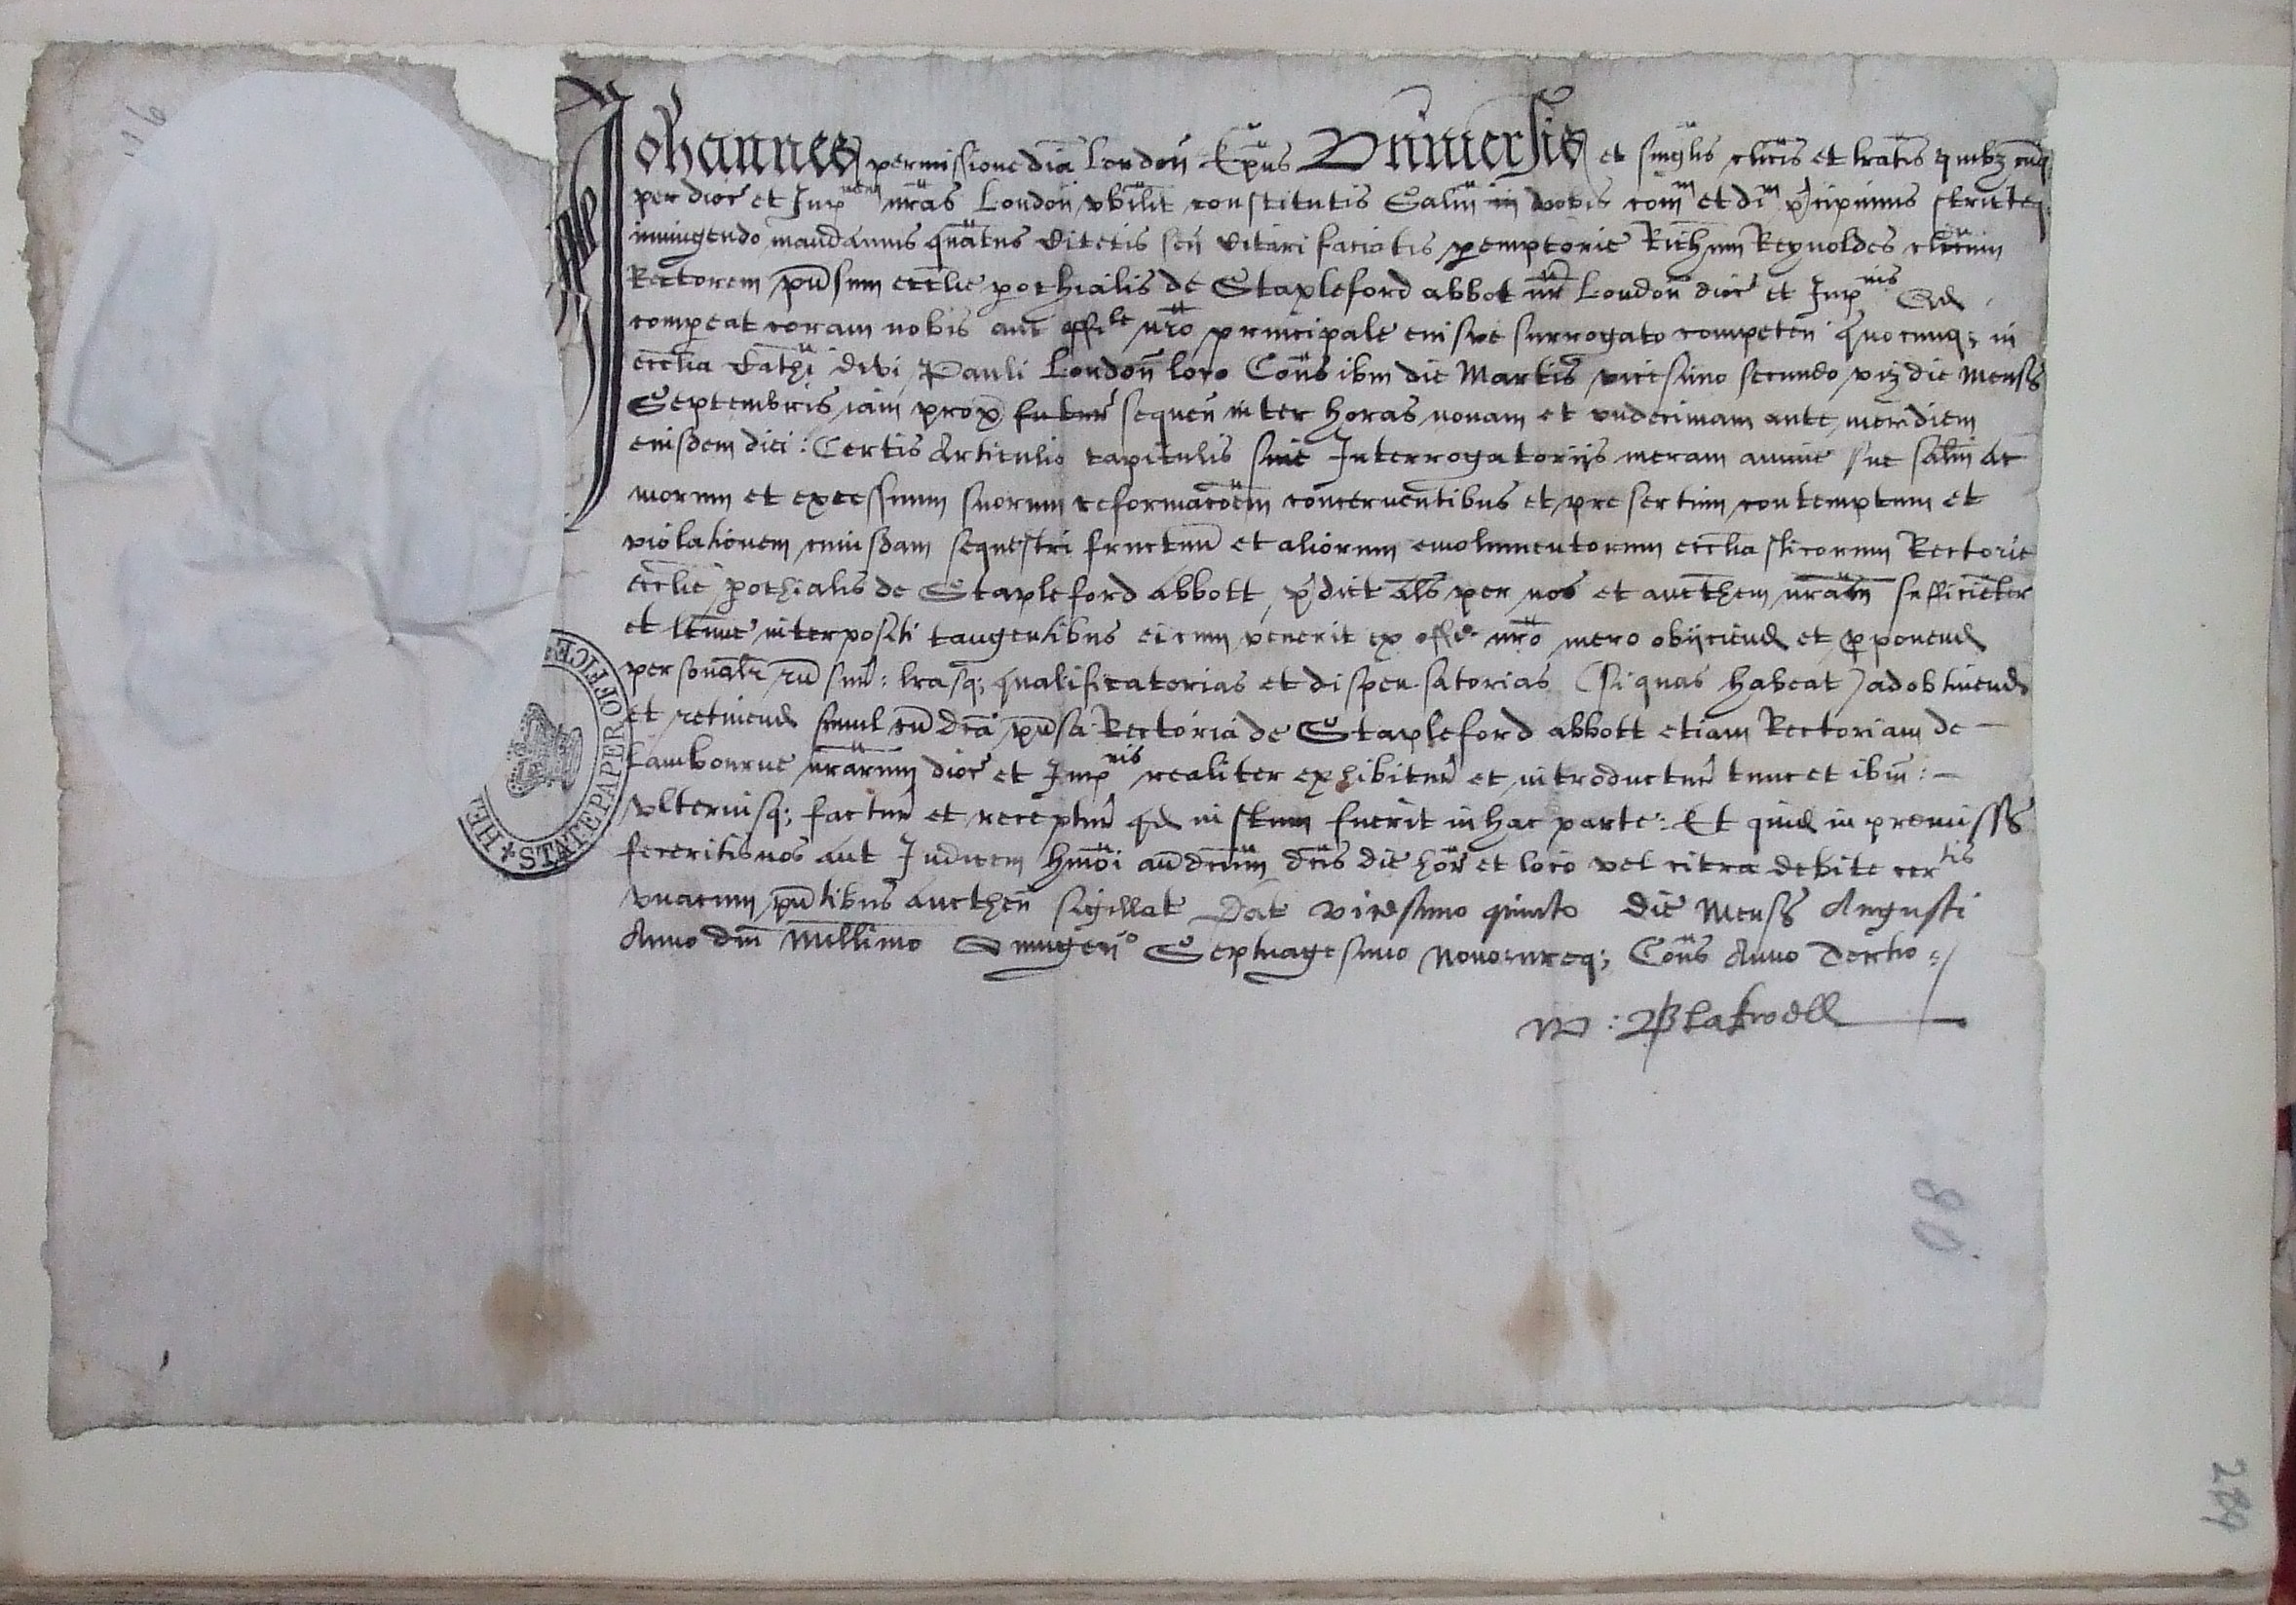 Johannes permissione dia London Epus Vniuersis et singlis clicis et lratis quibzcuq
per dioc et Jurp nem nras London vbilit constitutis Saltm in vobis com et di precipimus stricteq
iniungendo mandamus quatus Citetis seu Citari faciatis peremptorie Richum Reynoldes clicum
Rectorem pnsum ecclie pochialis de Stapleford abbot nr London dioc et Jurp nis Qd
compeat coram nobis aut offile nro principale eiusue surrogato competen quocunq; in
ecclia Cathi divi Pauli London loco Cons ibm die Martis vicesimo secundo viz die mensis
Septembris iam prox futur sequen inter horas nonam et vndecimam ante meridiem
eiusdem diei: Certis Articulis capitulis siue Interrogatorijs meram anime sue saltm ac
morum et excessuum suorum reformacoem concernentibus et presertim contemptum et
violationem cuiusdam sequestri fructuu et aliorum emolumentorum ecclia sticorum Rectorie
ecclie pochialis de Stapleford abbott predict als per nos et aucthem nram sufficieter
et ltime interpositi tangentibus ei cum venerit ex offi nro mero obijciend et proponend
personalr rusur: lrasq; qualificatorias et dispensatorias (siquas habeat) ad obtinend
et retinend simul cu dca pnsa Rectoria de Stapleford abbott etiam Rectoriam de
Lambourne nrarum dioc et Jurp nis realiter exhibitur et introductur tunc et ibm:
vlteriusq; factur et receptur qd iustum fuerit in hac parte: Et quid in premissis
feceritis nos aut Judicem hmoi au dcum dcis die hor et loco vel citra debite cer tis
vnacum pntibus aucthen sigillat Dat vicesimo quinto die Mensis Augusti
Anno dni Millimo Quingen o Septuagesimo Nono nreq; Cons Anno Tertio
W: Blakwell
THE STATE PAPER OFFICE
116
80
289